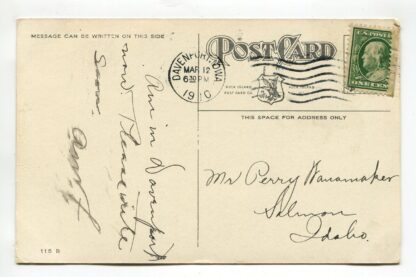 MESSAGE CAN BE WRITTEN ON THIS SIDE
POST CARD
ROCK ISLAND
POST CARD CO.
ROCK ISLAND
THIS SPACE FOR ADDRESS ONLY
DAVENPORT, IOWA
MAR 12
6 30 PM
1910
U.S. POSTAGE
ONE CENT
Am in Davenport
now Please write
soon.
Mr Perry Wanamaker
Salmon
Idaho.
115 B